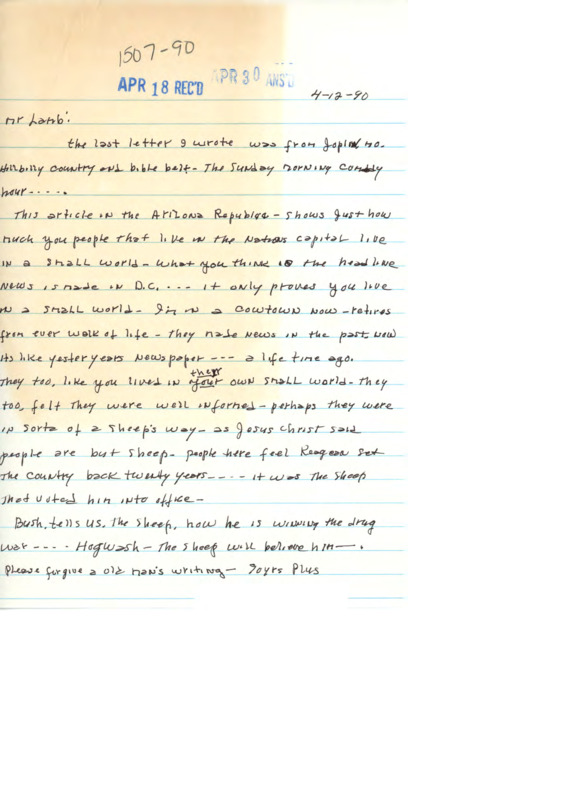 1507-90
APR 18 REC'D APR 30 ANS'D
4-12-90
Mr Lamb:
the last letter I wrote was from Joplin Mo.
Hillbilly country and bible belt- The Sunday morning comedy
hour - - - .
This article in the Arizona Republic - shows just how
much you people that live in the Nations capital live
in a small world - what you think is the headline
news is made in D.C. - - - it only proves you live
in a small world - I'm in a cowtown now - retires
from ever walk of life - they made news in the past, now
its like yesteryears newspaper --- a life time ago.
their
They too, like you lived in your own small world - they
too, felt they were well informed - perhaps they were
in sorta of a sheep's way - as Jesus Christ said
people are but sheep - people here feel Reagean set
the country back twenty years - - - - it was the sheep
that voted him into office -
Bush, tells us, the sheep, how he is winning the drug
war - - - - Hogwash - the sheep will believe him - .
Please forgive a old man's writing - 70yrs Plus